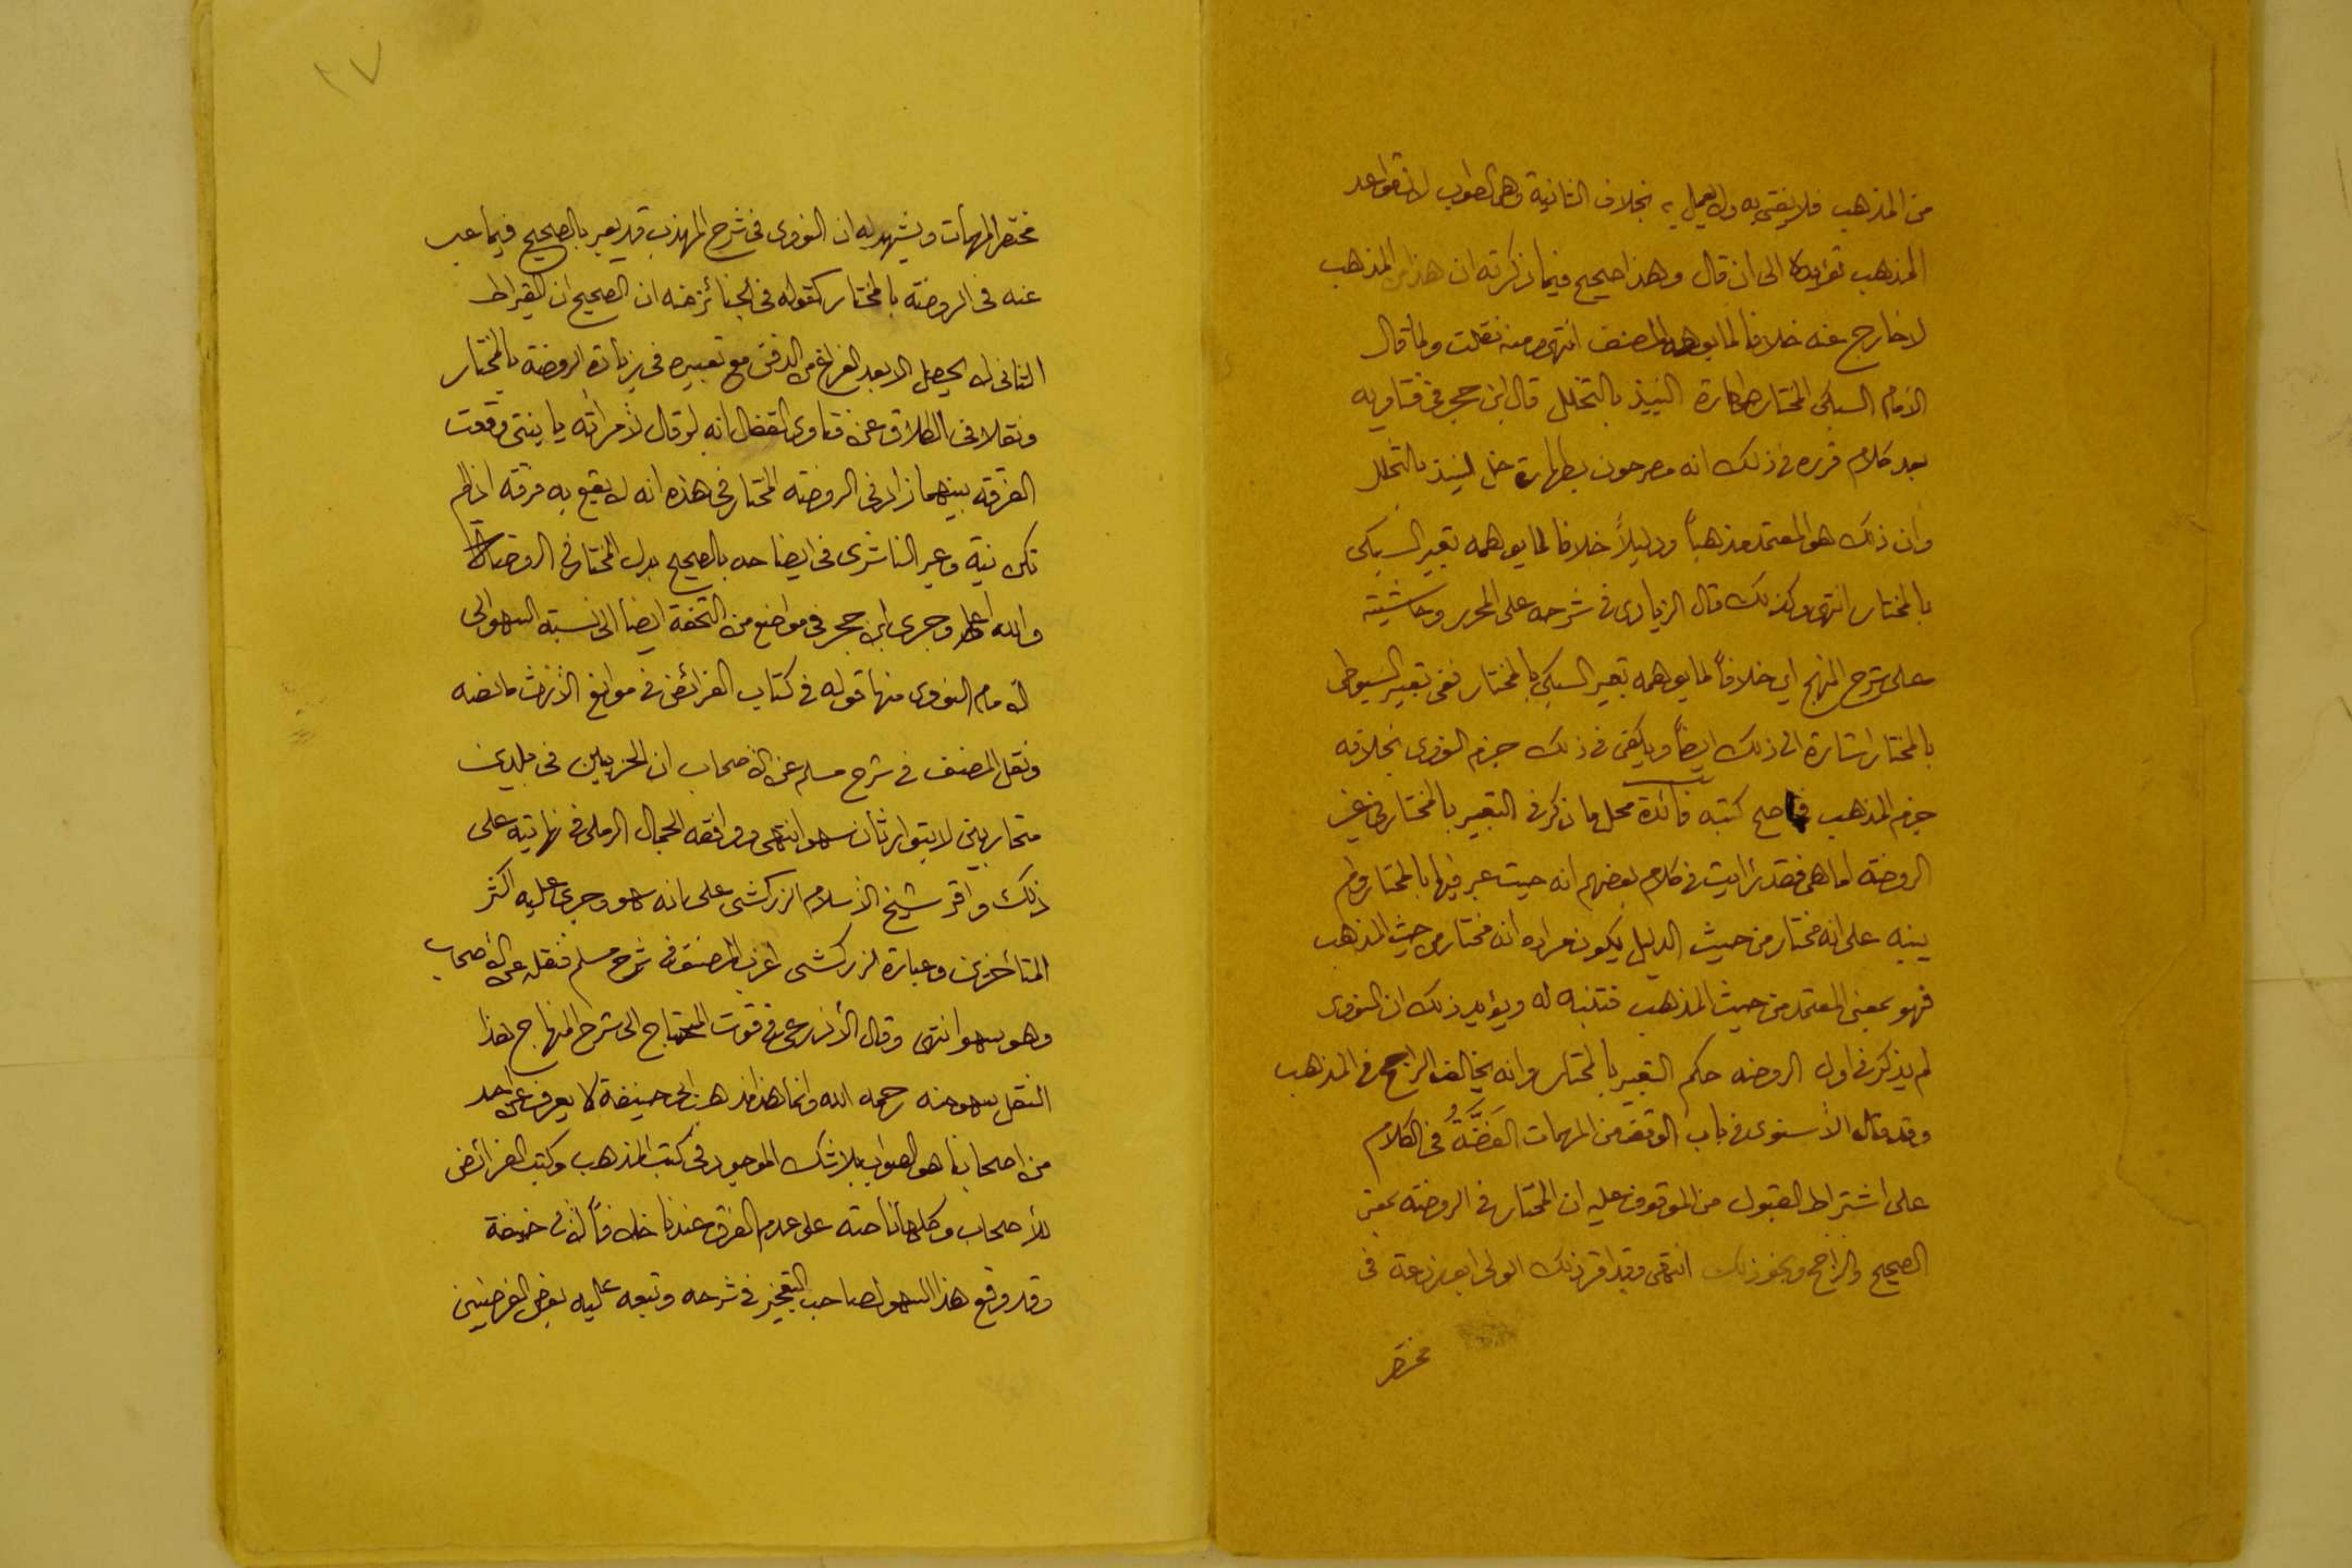 من المذهب فلا يفتى به ولا يعمل به بخلاف الثانية وهي الصواب لان قواعد
المذهب تؤيده الى ان قال وهذا صحيح فيما ذكرته ان هذا من المذهب
لا خارج عنه خلافا لما يوهمه المصنف انتهى ومنه نقلت ولما قال
الامام السبكي المختار طهارة النبيذ بالتخلل قال ابن حجر في فتاويه
بعد كلام قرره في ذلك انه مصرحون بطهارة خل النبيذ بالتخلل
وان ذلك هو المعتمد مذهباً ودليلاً خلافا لما يوهمه تعبير السبكي
بالمختار انتهى وكذلك قال الزيادي في شرحه على المحرر وحاشيته
على شرح المنهج اي خلافاً لما يوهمه تعبير السبكي بالمختار ففي تعبير السيوطي
بالمختار اشارة الى ذلك ايضاً ويكفي في ذلك جزم النووي بخلافه
جزم المذهب في اصح كتبه فائدة محل ما ذكر في التعبير بالمختار في غير
الروضة اما هي فقد رأيت في كلام بعضهم انه حيث عبر فيها بالمختار ولم
ينبه على انه مختار من حيث الدليل يكون مراده انه مختار من حيث المذهب
فهو بمعنى المعتمد من حيث المذهب فتنبه له ويؤيد ذلك ان النووي
لم يذكر في اول الروضه حكم التعبير بالمختار وانه يخالف الراجح في المذهب
وقد قال الأسنوي في باب الوقف من المهمات في الكلام
على اشتراط القبول من الموقوف عليه ان المختار في الروضة بمعنى
الصحيح والراجح ونحو ذلك انتهى وقد اقر ذلك الولي ابو زرعة في
مختصر
٢٧
مختصر المهمات ويشهد له ان النووي في شرح المهذب قد يعبر بالصحيح فيما عبر
عنه في الروضة بالمختار كقوله في الجنائز منه ان الصحيح ان القيراط
الثاني لا يحصل الا بعد الفراغ من الدفن مع تعبيره في زيادة الروضة بالمختار
ونقلا في الطلاق عن فتاوى القفال انه لو قال لامرأته يا بنتي وقعت
الفرقة بينهما زاد في الروضة المختار في هذه انه لا يقع به فرقة اذا لم
تكن نية وعبر الناشري في ايضاحه بالصحيح بدل المختار في الروضة
والله اعلم وجرى ابن حجر في مواضع من التحفة ايضاً الى نسبة السهو الى
الامام النووي منها قوله في كتاب الفرائض في موانع الارث ما نصه
ونقل المصنف في شرح مسلم عن الاصحاب ان الحربيين في بلدين
متحاربين لا يتوارثان سهو انتهى ووافقه الجمال الرملي في نهايته على
ذلك واقر شيخ الأسلام الزركشي على انه سهو وجرى عليه اكثر
المتأخرين وعبارة الزركشي اغرب المصنف في شرح مسلم فنقله عن الأصحاب
وهو سهو انتهى وقال الأذرعي في قوت المحتاج الى شرح المنهاج هذا
النقل سهو منه رحمه الله وانما هذا مذهب ابي حنيفة لا يعرف عن احد
من اصحابنا هو الصواب بلا شك الموجود في كتب المذهب وكتب الفرائض
للأصحاب وكلها ناصة على عدم الفرق عندنا خلافاً لأبي حنيفة
وقد وقع هذا السهو لصاحب التعجيز في شرحه وتبعه عليه بعض الفرضيين